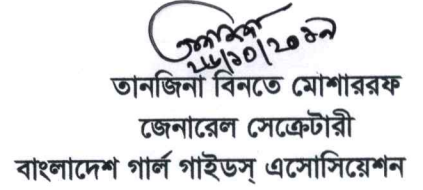 তানজিনা বিনতে মোশাররফ
জেনারেল সেক্রেটারী
বাংলাদেশ গার্ল গাইডস্ এসোসিয়েশন